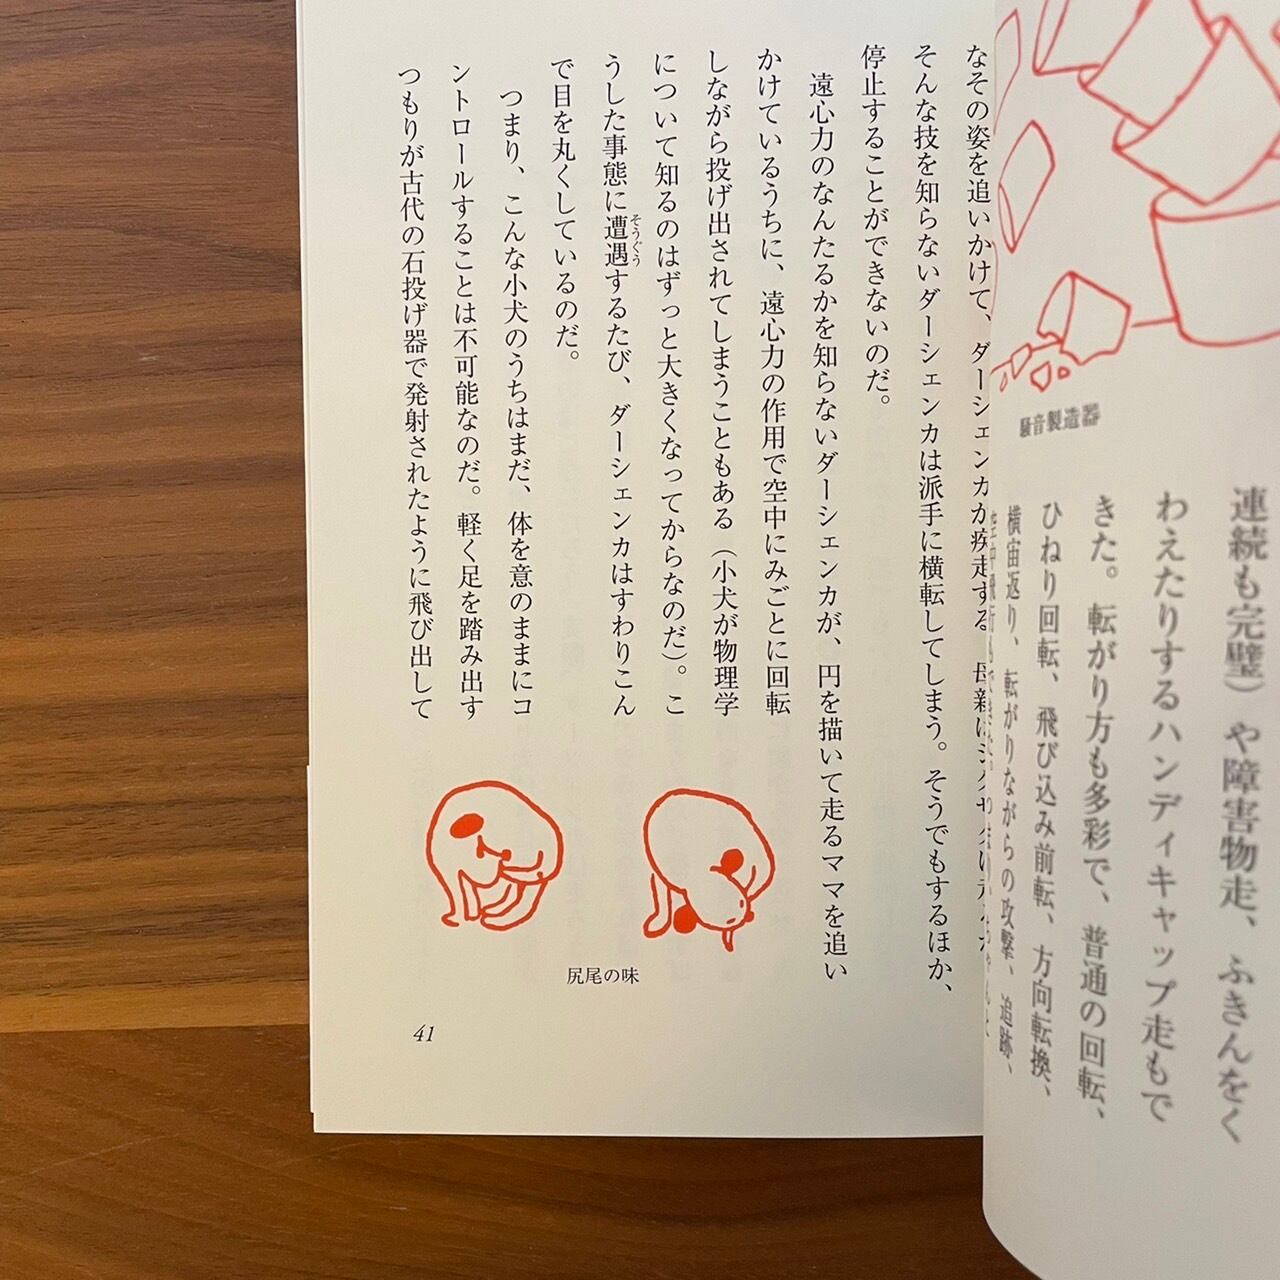 騒音製造器
連続も完璧）や障害物走、ふきんをく
わえたりするハンディキャップ走もで
きた。転がり方も多彩で、普通の回転、
ひねり回転、飛び込み前転、方向転換、
横宙返り、転がりながらの攻撃、追跡、
なその姿を追いかけて、ダーシェンカが疾走する。母親は
そんな技を知らないダーシェンカは派手に横転してしまう。そうでもするほか、
停止することができないのだ。
遠心力のなんたるかを知らないダーシェンカが、円を描いて走るママを追い
かけているうちに、遠心力の作用で空中にみごとに回転
しながら投げ出されてしまうこともある（小犬が物理学
について知るのはずっと大きくなってからなのだ）。こ
うした事態に遭遇するたび、ダーシェンカはすわりこん
そうぐう
で目を丸くしているのだ。
つまり、こんな小犬のうちはまだ、体を意のままにコ
ントロールすることは不可能なのだ。軽く足を踏み出す
つもりが古代の石投げ器で発射されたように飛び出して
尻尾の味
41